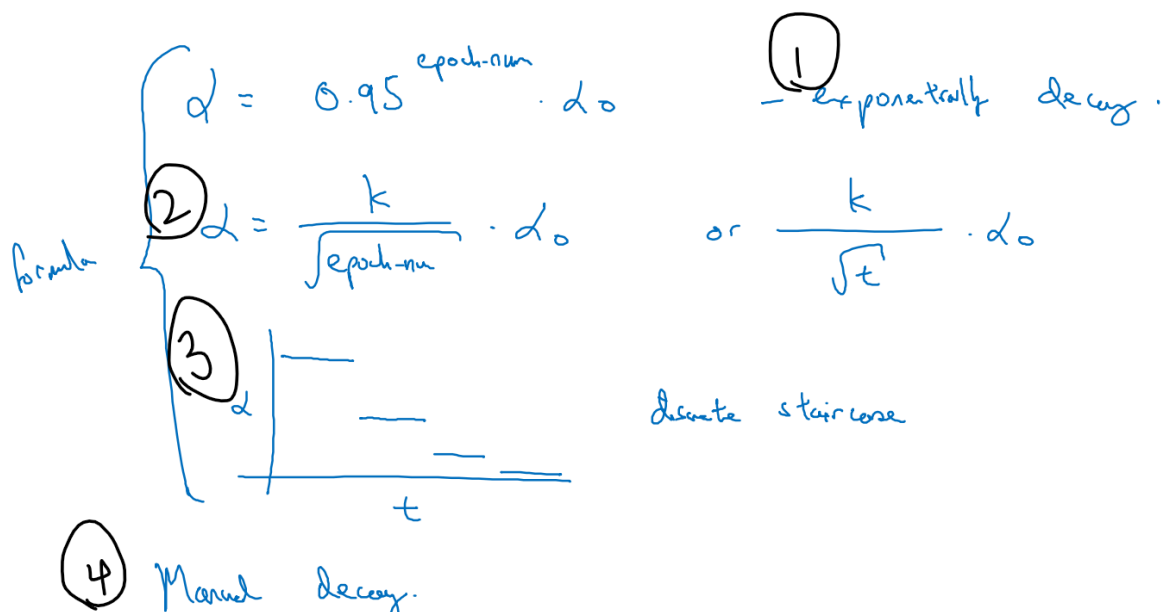 1
α = 0.95^epoch-num · α₀ - exponentially decay.
2 α = k/√epoch-num · α₀ or k/√t · α₀
formula
3
α discrete staircase
t
4 Manual decay.